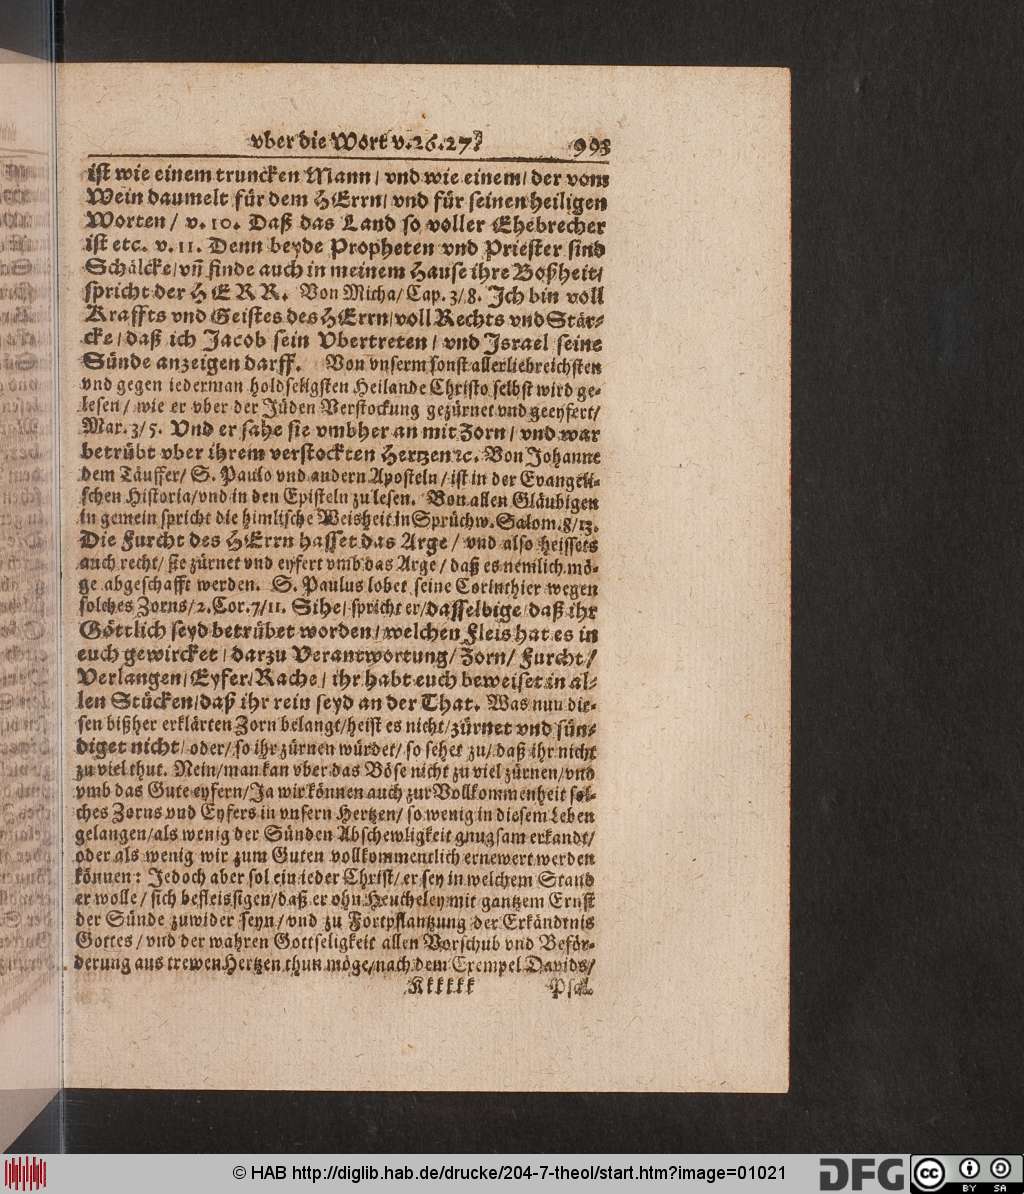 vber die Wort v. 26. 27. 993
ist wie einem truncken Mann / vnd wie einem / der vom
Wein daumelt für dem HErrn / vnd für seinen heiligen
Worten / v. 10. Daß das Land so voller Ehebrecher
ist etc. v. 11. Denn beyde Propheten vnd Priester sind
Schälcke / vñ finde auch in meinem Hause ihre Boßheit /
spricht der HERR. Von Micha / Cap. 3 / 8. Ich bin voll
Kraffts vnd Geistes des HErrn / voll Rechts vnd Stär-
cke / daß ich Jacob sein Vbertreten / vnd Israel seine
Sünde anzeigen darff. Von vnserm sonst allerliebreichsten
vnd gegen iederman holdseligsten Heilande Christo selbst wird ge-
lesen / wie er vber der Jüden Verstockung gezürnet vnd geeyfert /
Mar. 3 / 5. Vnd er sahe sie vmbher an mit Zorn / vnd war
betrübt vber ihrem verstockten Hertzen ꝛc. Von Johanne
dem Täuffer / S. Paulo vnd andern Aposteln / ist in der Evangeli-
schen Historia / vnd in den Episteln zu lesen. Von allen Gläubigen
in gemein spricht die himlische Weisheit in Sprüchw. Salom. 8 / 13.
Die Furcht des HErrn hasset das Arge / vnd also heissets
auch recht / sie zürnet vnd eyfert vmb das Arge / daß es nemlich mö-
ge abgeschafft werden. S. Paulus lobet seine Corinthier wegen
solches Zorns / 2. Cor. 7 / 11. Sihe / spricht er / dasselbige / daß ihr
Göttlich seyd betrübet worden / welchen Fleis hat es in
euch gewircket / darzu Verantwortung / Zorn / Furcht /
Verlangen / Eyfer / Rache / ihr habt euch beweiset in al-
len Stücken / daß ihr rein seyd an der That. Was nun die-
sen bißher erklärten Zorn belangt / heist es nicht / zürnet vnd sün-
diget nicht / oder / so ihr zürnen würdet / so sehet zu / daß ihr nicht
zu viel thut. Nein / man kan vber das Böse nicht zu viel zürnen / vnd
vmb das Gute eyfern / Ja wir können auch zur Vollkommenheit sol-
ches Zorns vnd Eyfers in vnsern Hertzen / so wenig in diesem Leben
gelangen / als wenig der Sünden Abschewligkeit gnugsam erkandt /
oder als wenig wir zum Guten vollkommentlich ernewert werden
können: Jedoch aber sol ein ieder Christ / er sey in welchem Stand
er wolle / sich befleissigen / daß er ohn Heucheley mit gantzem Ernst
der Sünde zuwider seyn / vnd zu Fortpflantzung der Erkändtnis
Gottes / vnd der wahren Gottseligkeit allen Vorschub vnd Beför-
derung aus trewen Hertzen thun möge / nach dem Exempel Davids /
Kkkkkk Psal.
© HAB http://diglib.hab.de/drucke/204-7-theol/start.htm?image=01021
DFG
cc BY SA